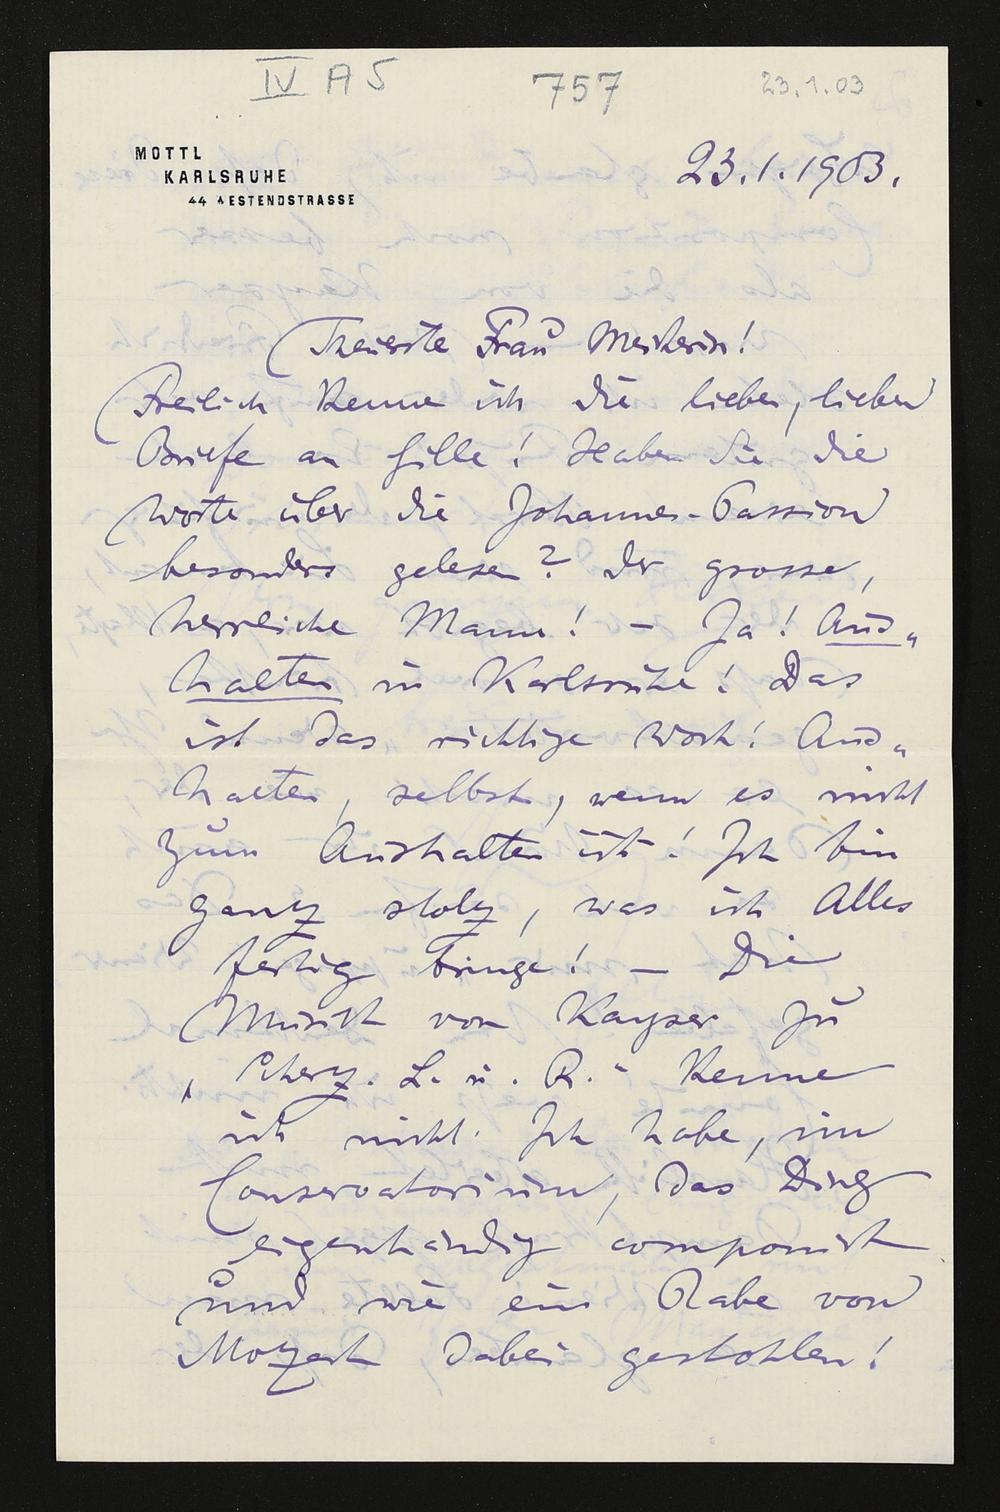 IV A 5 757 23.1.03
MOTTL
KARLSRUHE
44 WESTENDSTRASSE
23.1.1903.
Theuerste Frau Meisterin!
Freilich kenne ich die lieben, lieben
Briefe an Gille! Haben Sie die
Worte über die Johannes-Passion
besonders gelesen? Der grosse,
herrliche Mann! — Ja! Aus„
halten in Karlsruhe! Das
ist das richtige Wort! Aus„
halten, selbst, wenn es nicht
zum Aushalten ist! Ich bin
ganz stolz, was ich Alles
fertig bringe! — Die
Musik von Kayser zu
„Scherz. L. u. R." kenne
ich nicht. Ich habe, im
Conservatorium, das Ding
eigenhändig componirt
und wie ein Rabe von
Mozart dabei gestohlen!